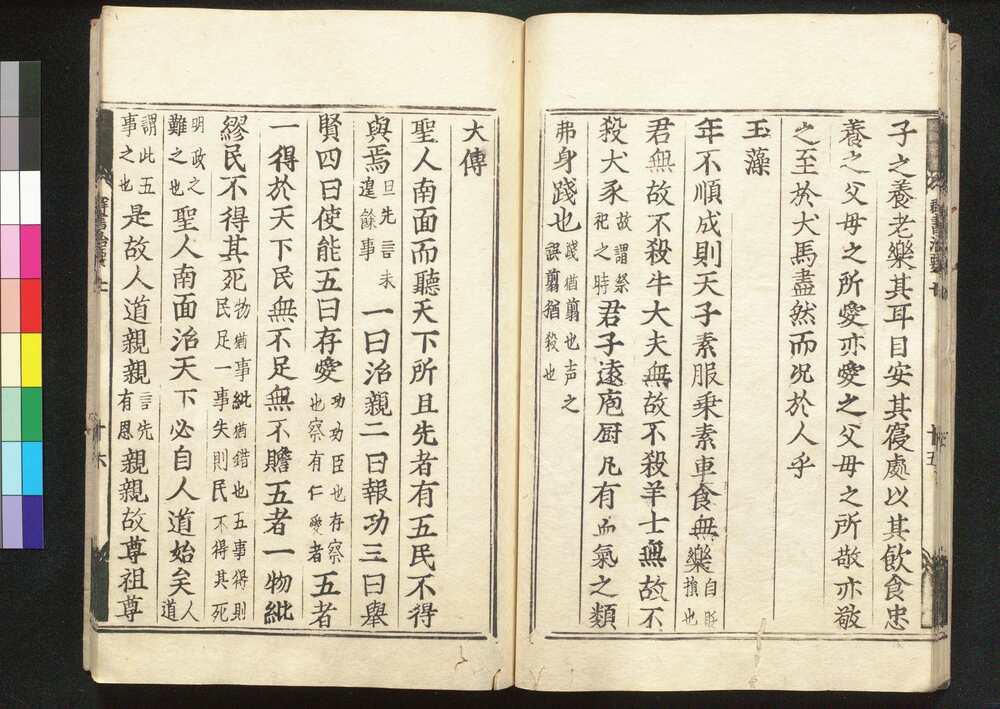 子之養老樂其耳目安其寑處以其飲食忠
養之父母之所愛亦愛之父母之所敬亦敬
之至於犬馬盡然而况於人乎
玉藻
年不順成則天子素服乗素車食無樂自貶損也
君無故不殺牛大夫無故不殺羊士無故不
殺犬豕故謂祭祀之時君子遠庖厨凡有血氣之類
弗身踐也踐猶翦也声之誤翦猶殺也
大傳
聖人南面而聽天下所且先者有五民不得
與焉且先言未遑餘事一曰治親二曰報功三曰舉
賢四曰使能五曰存愛功功臣也存察也察有仁愛者五者
一得於天下民無不足無不贍五者一物紕
繆民不得其死物猶事紕猶錯也五事得則民足一事失則民不得其死
明政之難之也聖人南面治天下必自人道始矣人道
謂此五事之也是故人道親親言先有恩親親故尊祖尊
羣書治要七
十五
十六